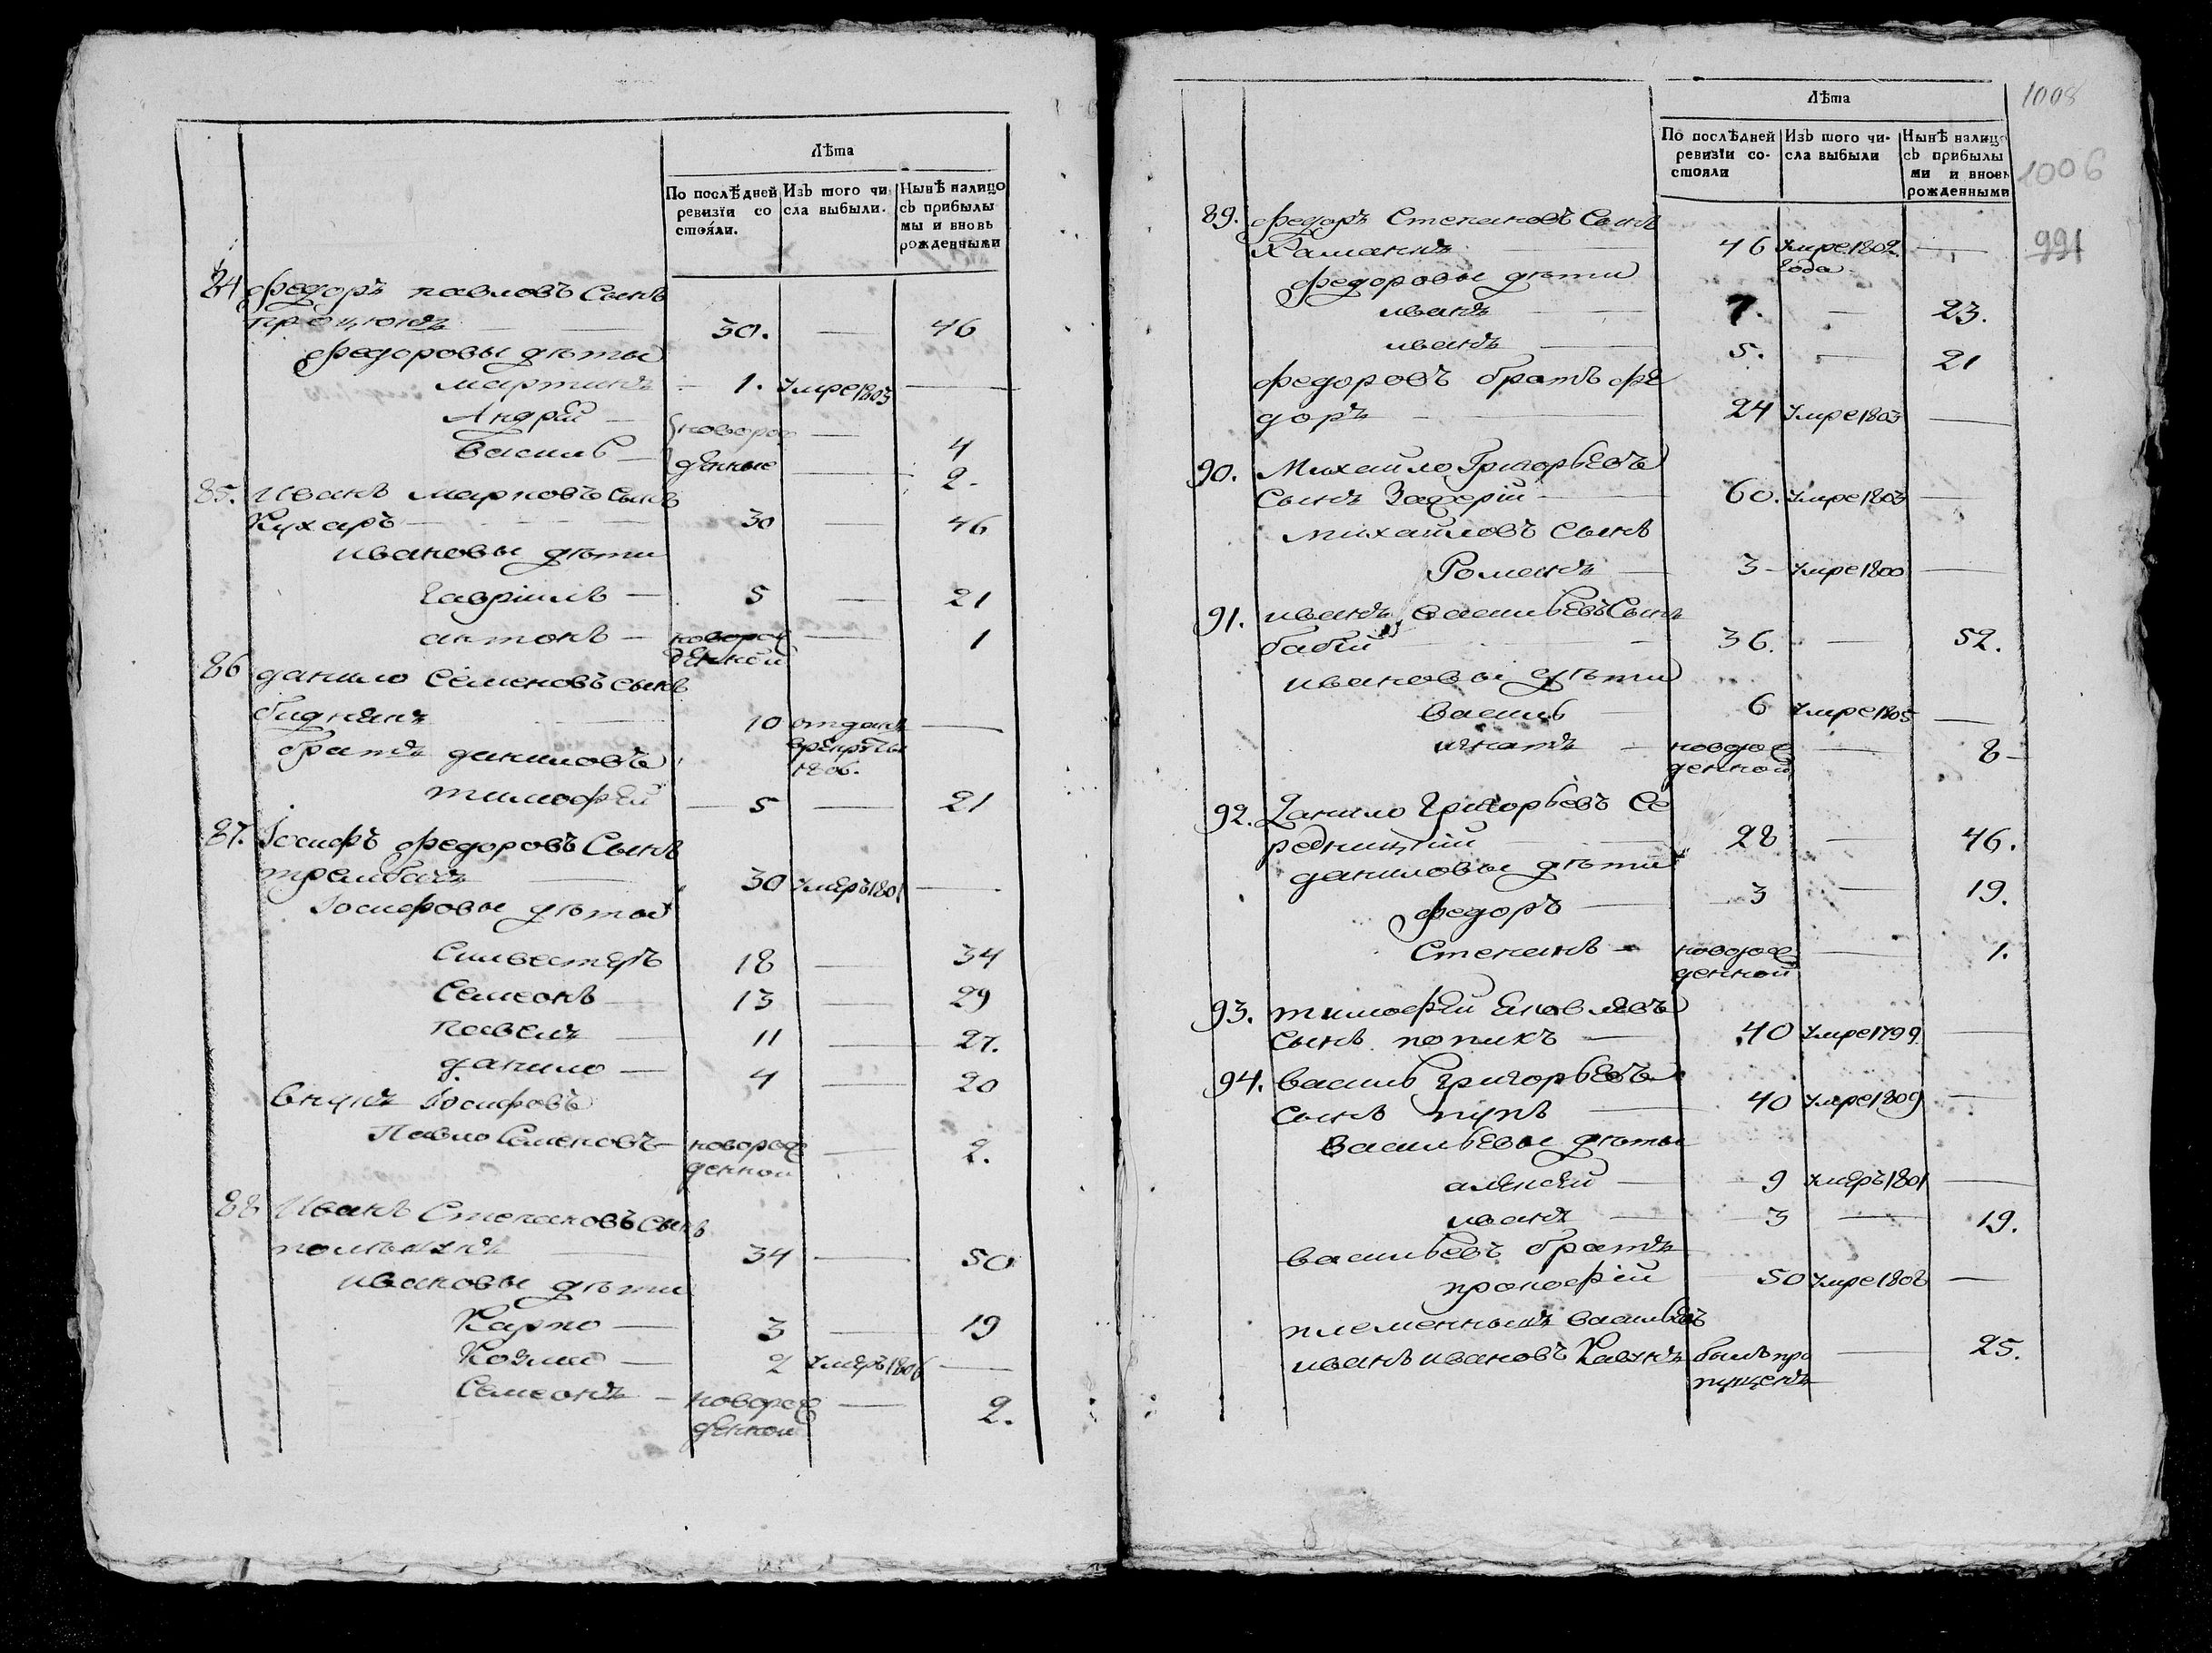 Лѣта
По послѣдней ревизїи со стояли.
Изъ того чи сла выбыли.
Нынѣ налицо съ прибылы мы и вновь рожденными
84 федоръ павловъ сынъ
процюкъ — 30. — 46
федоровы дѣты
мартинъ — 1. умре 1803 —
Андрей — новорож — 4
василь — денные — 2.
85. Иванъ марковъ сынъ
Кухаръ — 30 — 46
ивановы дѣти
гавріилъ — 5 — 21
антонъ — новорож — 1
денной
86 данило Семеновъ сынъ
биднякъ 10 отданъ —
врекруты
1806.
братъ даниловъ
тимофей — 5 — 21
87. Іосифъ федоровъ Сынъ
трембачъ — 30 умеръ 1801 —
Іосифовы дѣты
Сильвестеръ 18 — 34
Семеонъ — 13 — 29
павелъ — 11 — 27.
данило — 4 — 20
внукъ Іосифовъ
Павло Семеновъ — новорож — 2.
денной
88 Иванъ Степановъ Сынъ
34 — 50
ивановы дѣти
Карпо — 3 — 19
Козма — 2 умеръ 1806 —
Семеонъ — новорож — 2.
денной
1008
1006
991
Лѣта
По послѣдней ревизїи со- стояли
Изъ того чи- сла выбыли
Нынѣ налицо съ прибылы ми и вновь рожденными
89. федоръ Степановъ Сынъ
Каманъ — 46 умре 1802 —
года
федоровы дѣти
иванъ — 7. — 23.
иванъ — 5. — 21
федоровъ братъ фе
доръ — 24 умре 1803 —
90. Михайло Григорьевъ
Сынъ Захерій — 60. умре 1803 —
михайловъ сынъ
Романъ — 3 — умре 1800 —
91. иванъ васильевъ Сынъ
бабій — 36. — 52.
ивановы дѣти
василь — 6 умре 1805 —
игнатъ — новорож — 8 —
денной
92. Данило Григорьевъ Се
редницкій — 28 — 46.
даниловы дѣти
федоръ — 3 — 19.
Степанъ — новорож — 1.
денной
93. тимофей Яковлевъ
сынъ попикъ — 40 умре 1799 —
94. василь григорьевъ
сынъ пупъ — 40 умре 1809 —
Васильевы дѣты
алексей — 9 умеръ 1801 —
иванъ — 3 — 19.
васильевъ братъ
прокофій 50 умре 1802 —
племенныкъ васильевъ
иванъ ивановъ Кавунъ былъ про — 25.
пущенъ